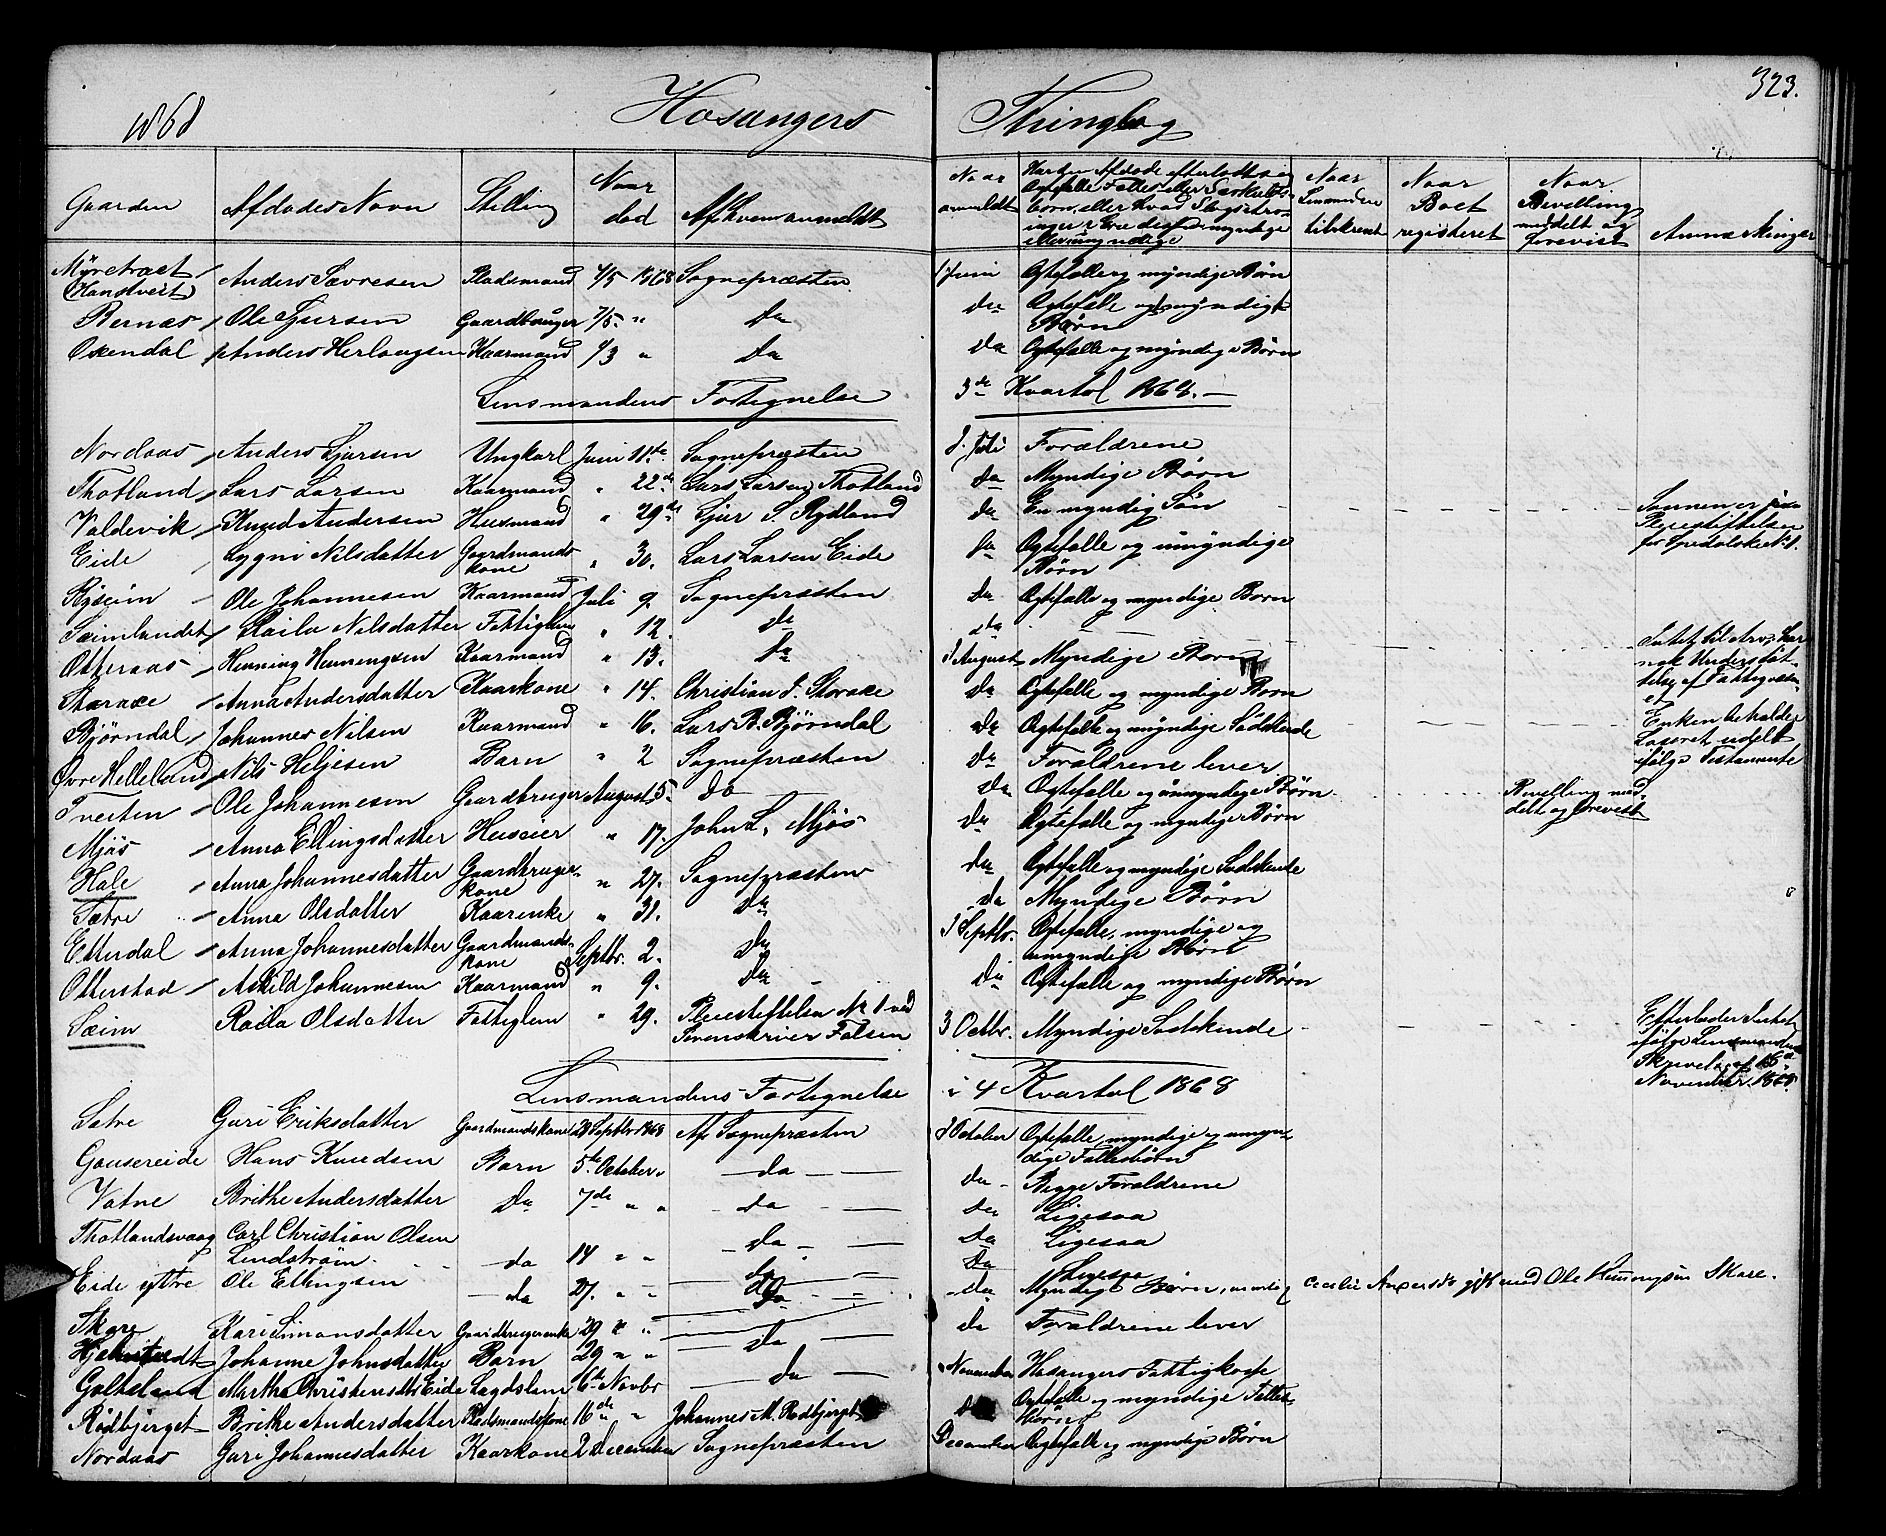 1868 Hosangers Thinglag 323.
Gaarden Afdødes Navn Stilling Naar død Af hvem anmeldt Naar anmeldt Har den Afdøde efterladt sig Ægtefælle Fælles eller Særkulds- børn, eller hvad Slags Arvinger; Ere disse myndige eller umyndige Naar Lensmanden tilskrevet Naar Boet registeret Naar Bevilling meddelt og forevist Anmærkninger
Myretræet (Hanstveit) Anders Sævresen Pladsmand 4/5 1868 Sognepræsten 1 Juni Ægtefælle og myndige Børn
Bernæs Ole Sjursen Gaardbruger 7/5 " da da Ægtefælle og myndige Børn
Oxendal Anders Herlaugsen Kaarmand 4/3 " da da Ægtefælle og myndige Børn
Lensmandens Fortegnelse 3de Kvartal 1868.
Nordaas Anders Sjursen Ungkarl Juni 11te Sognepræsten 1. Juli Forældrene
Thotland Lars Larsen Kaarmand " 22de Lars Larsen Thotland da Myndige Børn
Valdevik Knud Andersen Huusmand " 29de Sjur S. Rydland da En myndig Søn Sønnen er paa Pleiestiftelsen for Spedalske N. 1.
Eide Sygni Nilsdatter Gaardmands- kone " 30. Lars Larsen Eide da Ægtefælle og umyndige Børn
Ryseim Ole Johannesen Kaarmand Juli 9. Sognepræsten da Ægtefælle og myndige Børn
Seimlandet Raila Nilsdatter Fattiglem " 12. da da
Otteraas Henning Henningsen Kaarmand " 13. da 1 August Myndige Børn
Storaxe Anna Andersdatter Kaarkone " 14. Christian J. Storaxe da Ægtefælle og myndige Børn
Bjørndal Johannes Nilsen Kaarmand " 16. Lars B. Bjørndal da Ægtefælle og myndige Sødskende Enken beholder Løsøret udelt ifølge Testamente
Øvre Helleland Nils Heljesen Barn " 2 Sognepræsten da Forældrene lever
Tveiten Ole Johannesen Gaardbruger August 5. do da Ægtefælle og umyndige Børn Bevilling meddelt og forevist
Mjøs Anna Ellingsdatter Huseier " 17. John L. Mjøs da Ægtefælle og myndige Børn
Hole Anna Johannesdatter Gaardbruger- kone " 27. Sognepræsten da Ægtefælle og myndige Sødskende
Sætre Anna Olsdatter Kaarenke " 31. da da Myndige Børn
Etterdal Anna Johannesdatter Gaardmands- kone Septbr. 2. da 1 Septbr. Ægtefælle, myndige og umyndige Børn
Otterstad Askild Johannesen Kaarmand " 9. da da Ægtefælle og myndige Børn
Seim Raila Olsdatter Fattiglem " 29. Pleiestiftelsen N. 1 ved Sorenskriver Falsen 3 Octbr. Myndige Sødskende ifølge Lensmandens Skrivelse af 16de November 1868
Lensmandens Fortegnelse i 4 Kvartal 1868
Sætre Guri Eriksdatter Gaardmandskone 28 Septbr 1868 Af Sognepræsten 1 October Ægtefælle, myndige og umyndige Fællesbørn
Gousereide Hans Knudsen Barn 5te October " da da Begge Forældrene
Vatne Brithe Andersdatter da 7de " " da da Ligesaa
Thotlandsvaag Carl Christian Olsen Lindstrøm da 14 " " da da Ligesaa
Eide yttre Ole Ellingsen da 27. " " da da Ligesaa
Skare Kari Simonsdatter Gaardbrugerenke 29 " " da da Myndige Børn, nemlig Cecilie Andersd. gift med Ole Henningsen Skare.
Johanne Johnsdatter Barn 29 " " da da Forældrene lever
Galteland Martha Christensdtr Eide Lægdslem 16de Novbr da November Hosangers Fattigkasse
Rødbjerget Brithe Andersdatter Pladsmandskone 16de " " Johannes M. Rødbjerget da Ægtefælle og myndige Fælles- børn
Nordaas Guri Johannesdatter Kaarkone 2 December Sognepræsten December Ægtefælle og myndige Børn